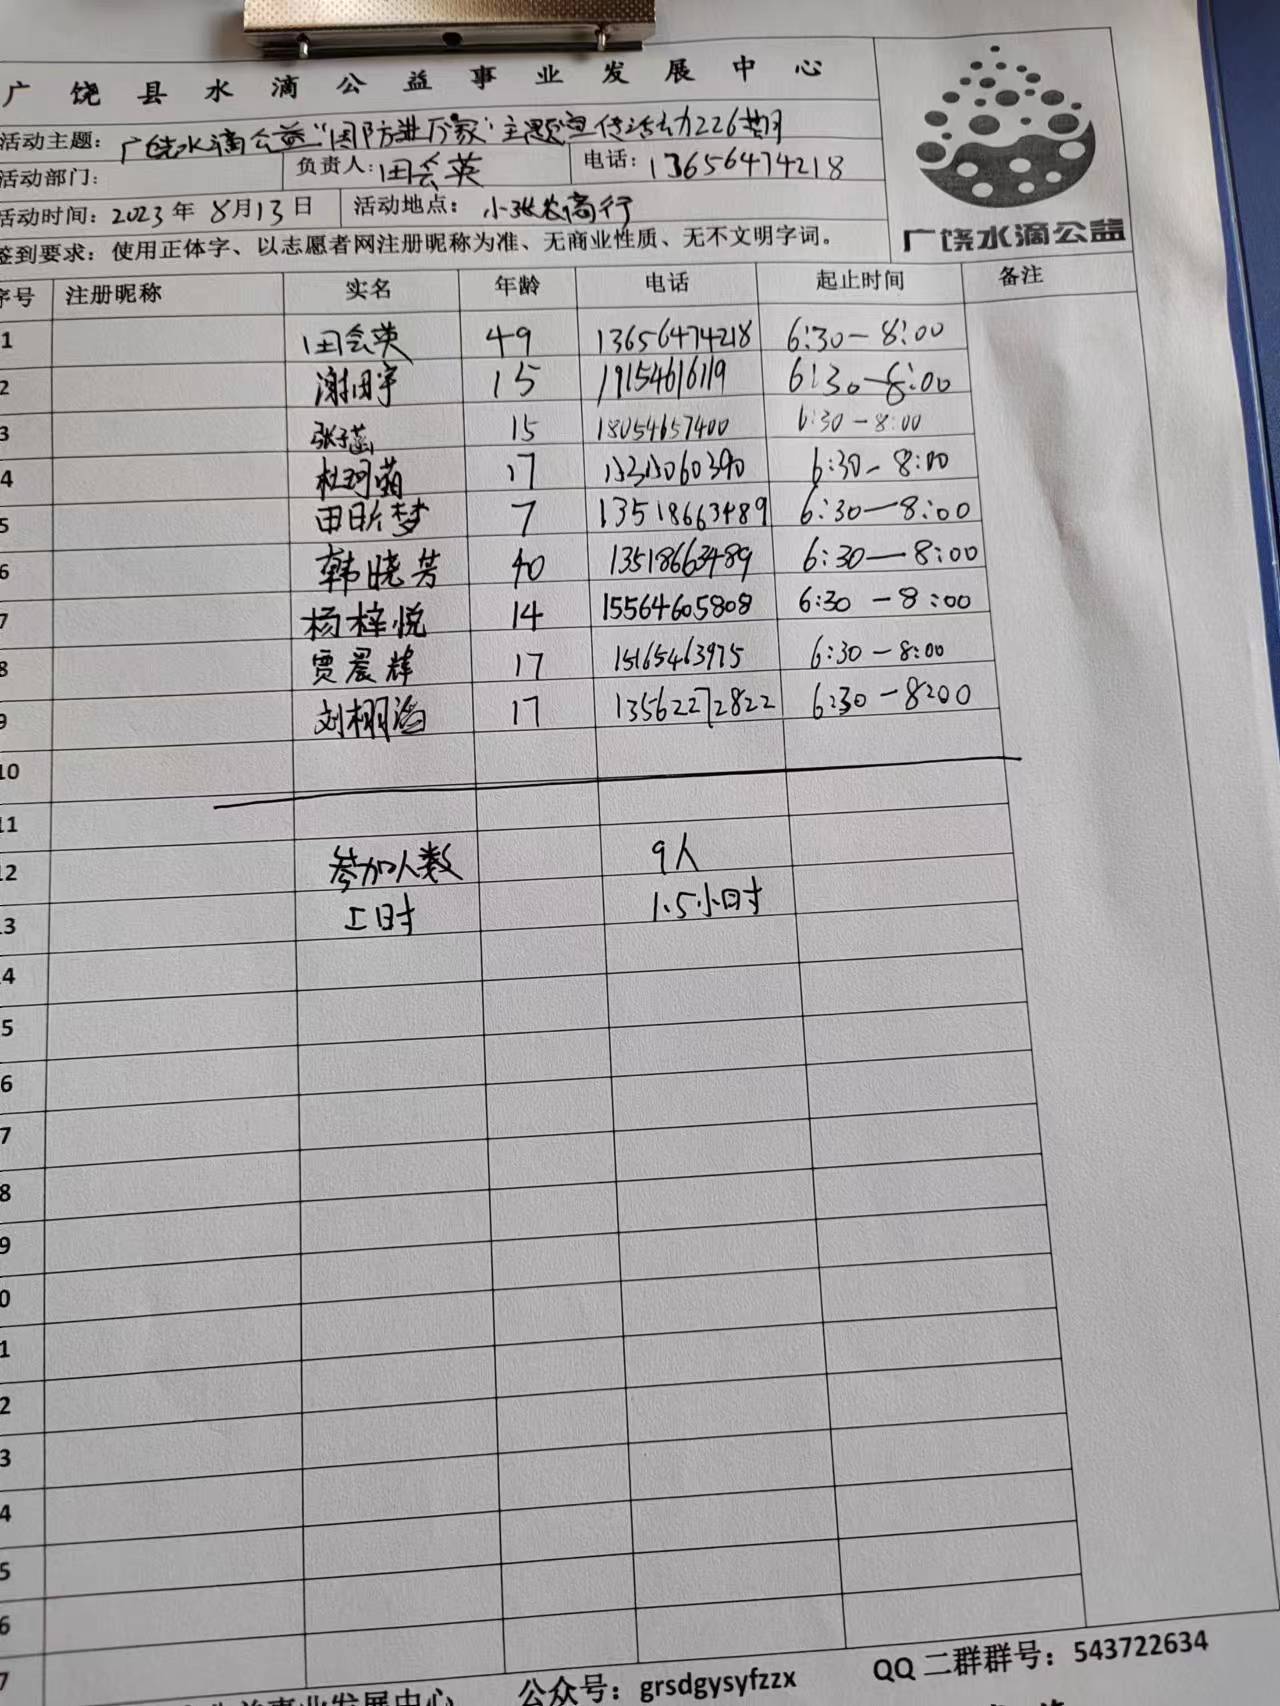 广饶县水滴公益事业发展中心
活动主题：广饶水滴公益"国防进万家"主题宣传活动226期
活动部门： 负责人：田会英 电话：13656474218
活动时间：2023年8月13日 活动地点：小张农商行
签到要求：使用正体字、以志愿者网注册昵称为准、无商业性质、无不文明字词。
广饶水滴公益
序号 注册昵称 实名 年龄 电话 起止时间 备注
1 田会英 49 13656474218 6:30-8:00
2 15 19154616119 6:30-8:00
3 张子菡 15 18054657400 6:30-8:00
4 杜珂萌 17 6:30-8:00
5 田昕梦 7 13518663489 6:30-8:00
6 韩晓芳 40 13518663489 6:30-8:00
7 杨梓悦 14 15564605808 6:30-8:00
8 贾晨辉 17 15165463975 6:30-8:00
9 刘栩滔 17 13562272822 6:30-8:00
10
11
12 参加人数 9人
3 工时 1.5小时
4
5
6
7
8
9
0
1
2
3
4
5
6
7
公益事业发展中心 公众号：grsdgysyfzzx QQ二群群号：543722634